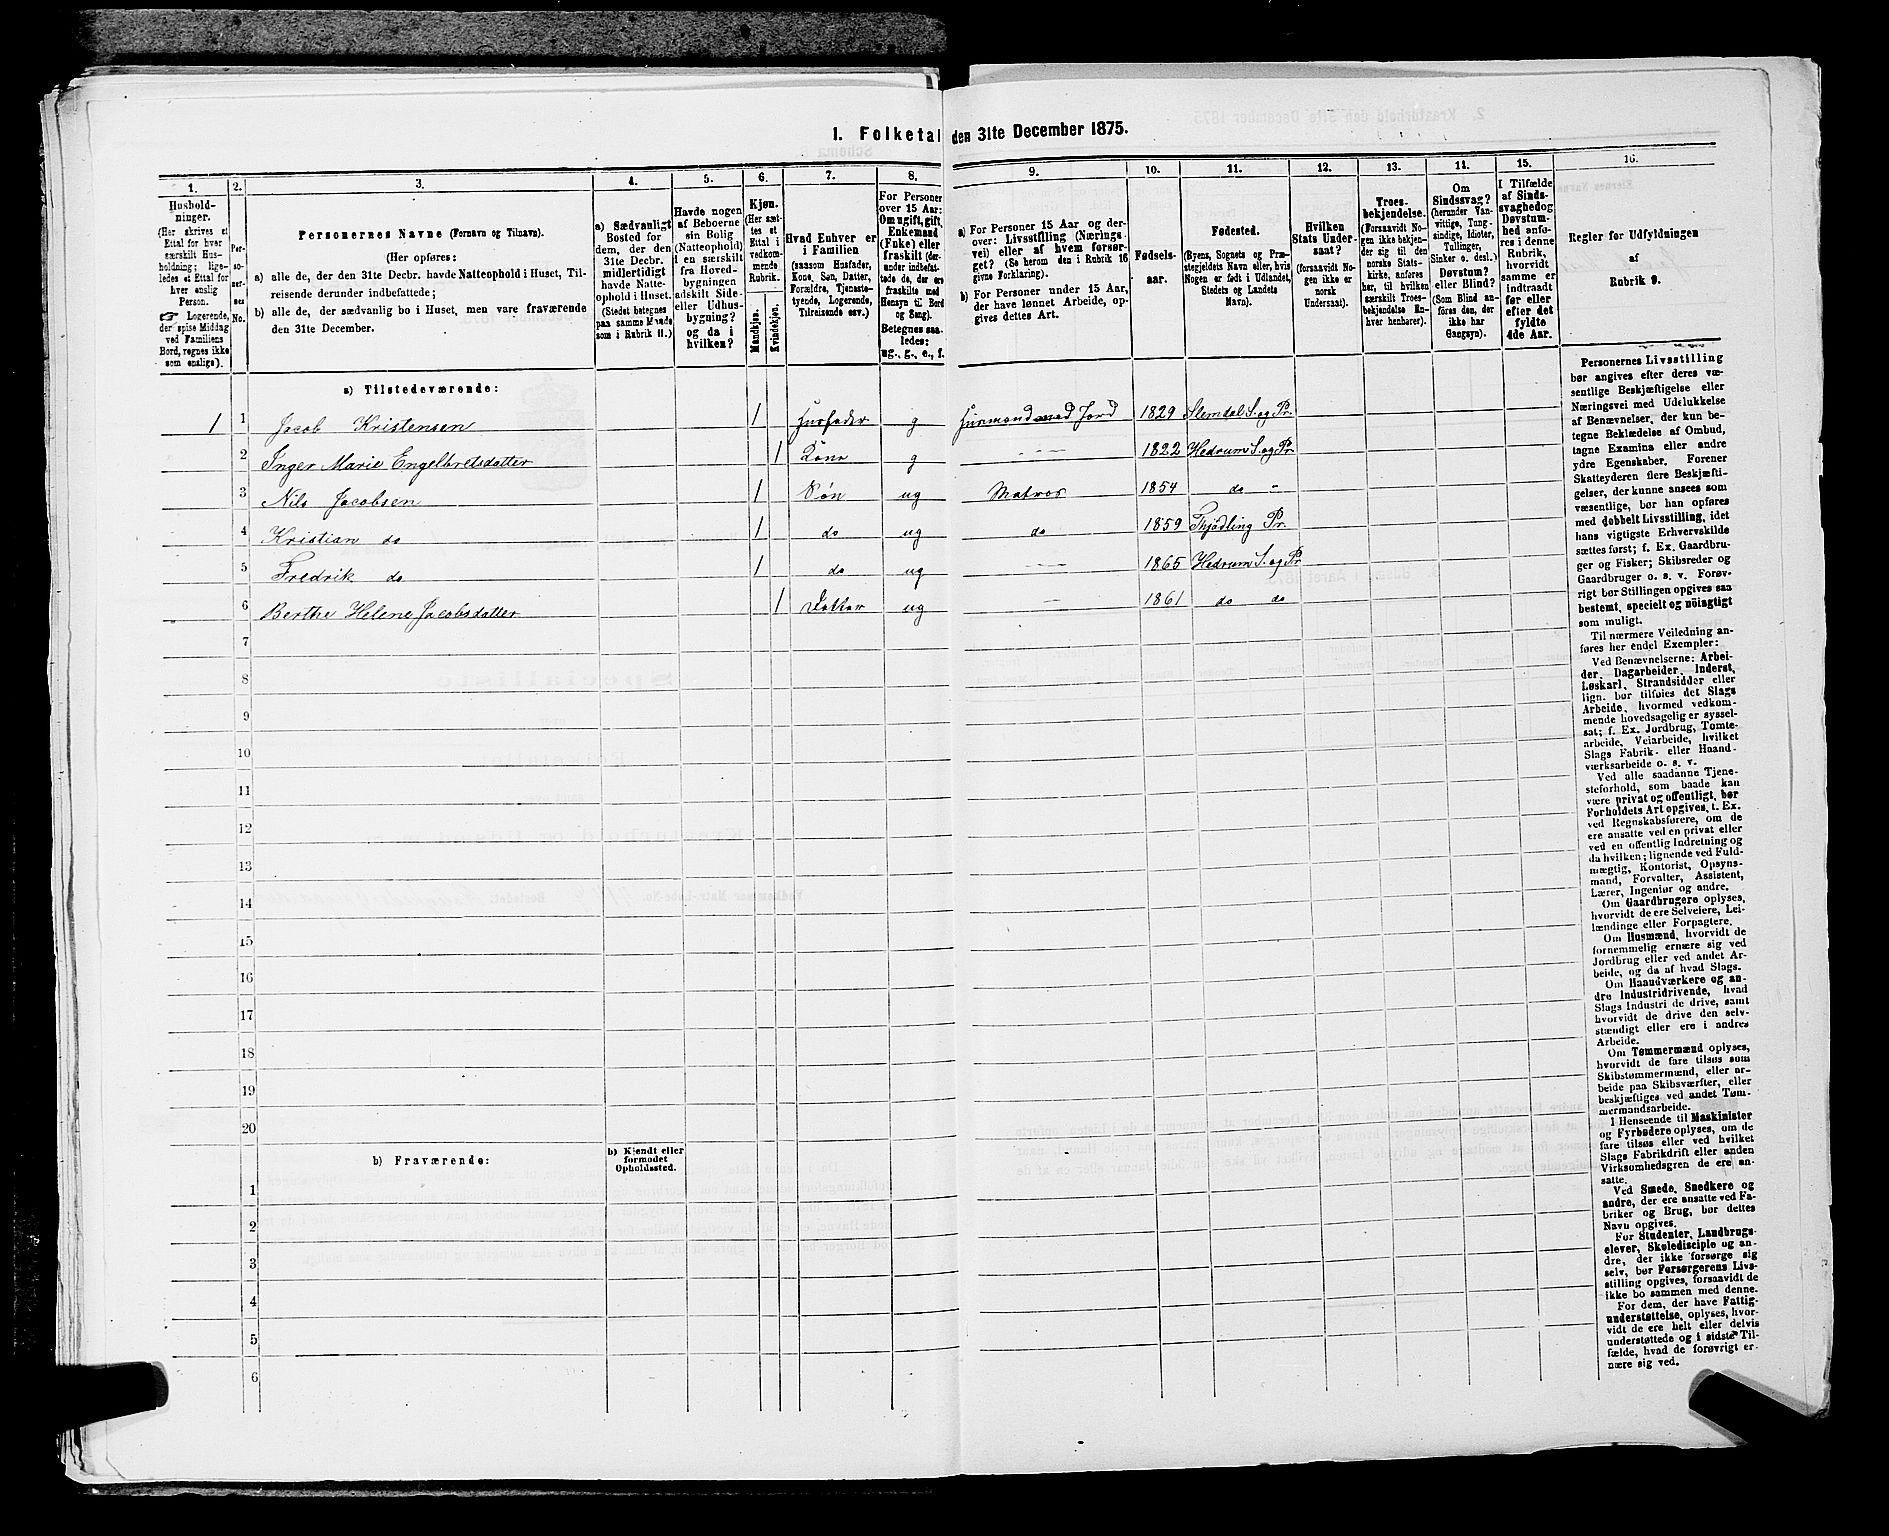 1. Folketal den 31te December 1875.
1.
Hushold-
ninger.
(Her skrives et
Ettal for hver
særskilt Hus-
holdning; lige-
ledes et Ettal for
hver enslig
Person.
Logerende,
der spise Middag
ved Familiens
Bord, regnes ikke
som enslige).
2.
Per-
so-
ner-
nes
No.
3.
Personernes Navne (Fornavn og Tilnavn).
(Her opføres:
a) alle de, der den 31te Decbr. havde Natteophold i Huset, Til-
reisende derunder indbefattede;
b) alle de, der sædvanlig bo i Huset, men vare fraværende
den 31te December.
4.
a) Sædvanligt
Bosted for
dem, der den
31te Decbr.
midlertidigt
havde Natte-
ophold i Huset.
(Stedet betegnes
paa samme Maade
som i Rubrik 11.)
5.
Havde nogen
af Beboerne
sin Bolig
(Natteophold)
i en særskilt
fra Hoved-
bygningen
adskilt Side-
eller Udhus-
bygning?
og da i
hvilken?
6.
Kjøn.
(Her sæt-
tes et
Ettal i
vedkom-
mende
Rubrik.
Mandkjøn.
Kvindekjøn.
7.
Hvad Enhver er
i Familien
(saasom Husfader,
Kone, Søn, Datter,
Forældre, Tjeneste-
tyende, Logerende,
Tilreisende osv.)
8.
For Personer
over 15 Aar:
Om ugift, gift,
Enkemand
(Enke) eller
fraskilt (der-
under indbefat-
tede de, der ere
fraskilte med
Hensyn til Bord
og Seng).
Betegnes saa-
ledes:
ug., g., e., f.
9.
a) For Personer 15 Aar og der-
over: Livsstilling (Nærings-
vei) eller af hvem forsør-
get? (Se herom den i Rubrik 16
givne Forklaring).
b) For Personer under 15 Aar,
der have lønnet Arbeide, op-
gives dettes Art.
10.
Fødsels-
aar.
11.
Fødested.
(Byens, Sognets og Præ-
stegjeldets Navn eller, hvis
Nogen er født i Udlandet,
Stedets og Landets
Navn).
12.
Hvilken
Stats Under-
saat?
(forsaavidt No-
gen ikke er
norsk
Undersaat).
13.
Troes-
bekjendelse.
(Forsaavidt No-
gen ikke bekjen-
der sig til den
norske Stats-
kirke, anføres
her, til hvilken
særskilt Troes-
bekjendelse En-
hver henhører).
14.
Om
Sindssvag?
(herunder Van-
vittige, Tung-
sindige, Idioter,
Tullinger,
Sinker o. desl.)
Døvstum?
eller Blind?
(Som Blind an-
føres den, der
ikke har
Gangsyn).
15.
I Tilfælde
af Sinds-
svaghed og
Døvstum-
hed anfø-
res i denne
Rubrik,
hvorvidt
samme er
indtraadt
før eller
efter det
fyldte
4de Aar.
16.
Regler for Udfyldningen
af
Rubrik 9.
a) Tilstedeværende:
1 1 Jacob Kristensen 1 Husfader g Husmand med Jord 1829 Slemdal S. og Pr.
2 Inger Marie Engelbretsdatter 1 Kone g - - - 1822 Hedrum S. og Pr
3 Nils Jacobsen 1 Søn ug Matros 1854 do -
4 Kristian do 1 do ug do 1859 Thjødling Pr.
5 Fredrik do 1 do ug - - - 1865 Hedrum S. og Pr
6 Berthe Helene Jacobsdatter 1 Datter ug - 1861 do do
7
8
9
10
11
12
13
14
15
16
17
18
19
20
b) Fraværende:
b) Kjendt eller
formodet
Opholdssted.
1
2
3
4
5
6
Personernes Livsstilling
bør angives efter deres væ-
sentlige Beskjæftigelse eller
Næringsvei med Udelukkelse
af Benævnelser, der kun be-
tegne Beklædelse af Ombud,
tagne Examina eller andre
ydre Egenskaber. Forener
Skatteyderen flere Beskjæfti-
gelser, der kunne ansees som
væsentlige, bør han opføres
med dobbelt Livsstilling, idet
hans vigtigste Erhvervskilde
sættes først; f. Ex. Gaardbru-
ger og Fisker; Skibsreder og
Gaardbruger o. s. v. Forøv-
rigt bør Stillingen opgives saa
bestemt, specielt og nöiagtigt
som muligt.
Til nærmere Veiledning an-
føres her endel Exempler:
Ved Benævnelserne: Arbei-
der, Dagarbeider, Inderst,
Løskarl, Strandsidder eller
lign. bør tilføies det Slags
Arbeide, hvormed vedkom-
mende hovedsagelig er syssel-
sat; f. Ex. Jordbrug, Tomte-
arbeide, Veiarbeide, hvilket
Slags Fabrik- eller Haand-
værksarbeide o. s. v.
Ved alle saadanne Tjene-
steforhold, som baade kan
være privat og offentligt, bør
Forholdets Art opgives, t. Ex.
ved Regnskabsførere, om de
ere ansatte ved en privat eller
ved en offentlig Indretning og
da hvilken; lignende ved Fuld-
mægtig, Kontorist, Opsyns-
mand, Forvalter, Assistent,
Lærer, Ingeniør og andre.
Om Gaardbrugere oplyses,
hvorvidt de ere Selveiere, Lei-
lændinge eller Forpagtere.
Om Husmænd, hvorvidt de
fornemmelig ernære sig ved
Jordbrug eller ved andet Ar-
beide, og da af hvad Slags.
Om Haandværkere og an-
dre Industridrivende, hvad
Slags Industri de drive, samt
hvorvidt de drive den selv-
stændigt eller ere i andres
Arbeide.
Om Tømmermænd oplyses,
hvorvidt de fare tilsøs som
Skibstømmermænd, eller ar-
beide paa Skibsværfter, eller
beskjæftiges ved andet Tøm-
mermandsarbeide.
I Henseende til Maskinister
og Fyrbødere oplyses, om de
fare tilsøs eller ved hvilket
Slags Fabrikdrift eller anden
Virksomhedsgren de ere an-
satte.
Ved Smede, Snedkere og
andre, der ere ansatte ved Fa-
briker og Brug, bør dettes
Navn opgives.
For Studenter, Landbrugs-
elever, Skoledisciple og an-
dre, der ikke forsørge sig
selv, bør Forsørgerens Livs-
stilling opgives, forsaavidt de
ikke bo sammen med denne.
For dem, der have Fattig-
understøttelse, oplyses, hvor-
vidt de ere helt eller delvis
understøttede og i sidste Til-
fælde, hvad de forøvrigt er-
nære sig ved.